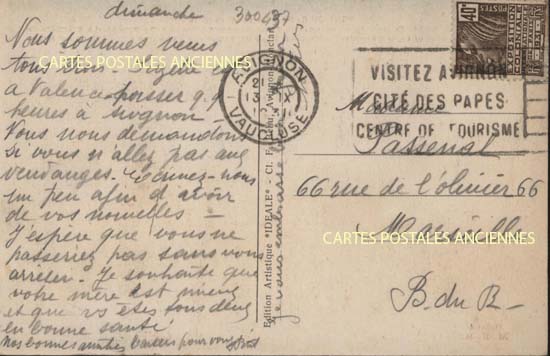 dimanche
300437
Nous sommes venus
tous trois
a Valence passer q q
heures à Avignon
Vous nous demandons
si vous n'allez pas aux
vendanges. Ecrivez-nous
un peu afin d'avoir
de vos nouvelles -
J'espère que vous ne
passeriez pas sans vous
arreter. Je souhaite que
votre mère est mieux
et que vs êtes tous deux
en bonne santé
Nos bonnes amitiés pour vous
Edition Artistique "IDEALE" - Cl. Avignon
je vous embrasse
AVIGNON
VAUCLUSE
POSTES
40c
VISITEZ AVIGNON
CITÉ DES PAPES
CENTRE DE TOURISME
Madame
Passenal
66 rue de l'olivier 66
Marseille
B. du R-
CARTES POSTALES ANCIENNES
CARTES POSTALES ANCIENNES
CARTES POSTALES ANCIENNES